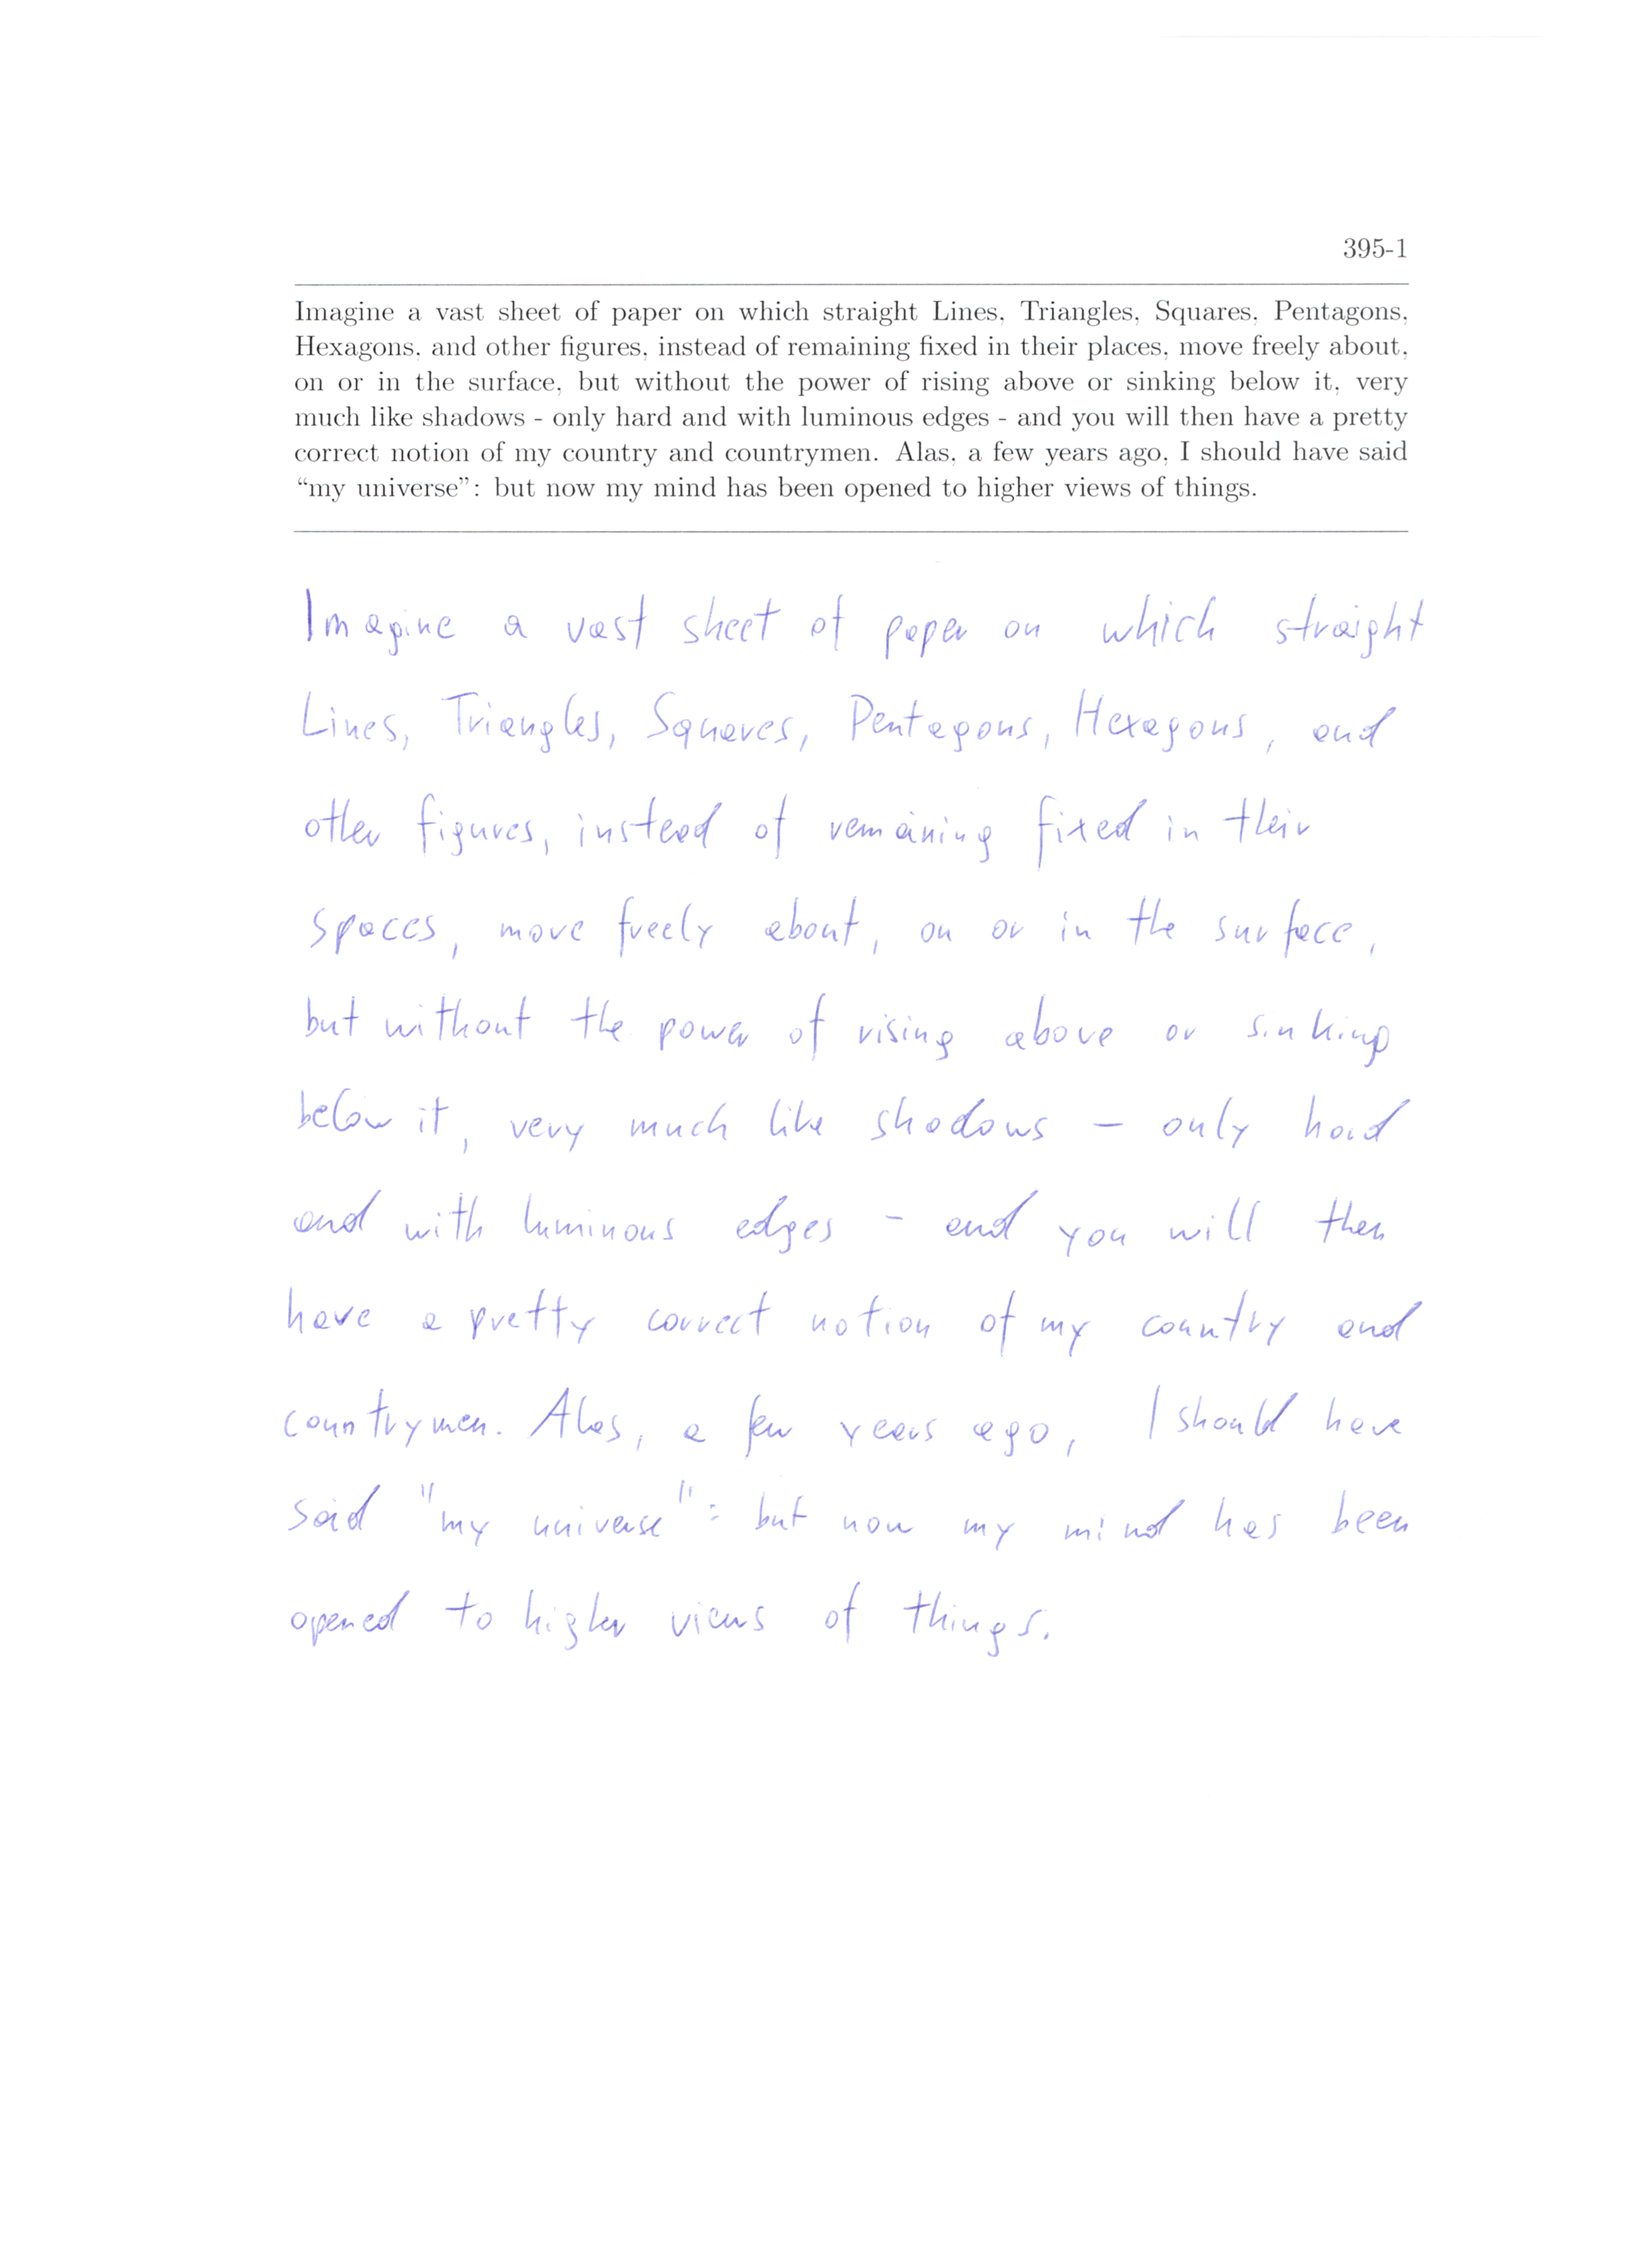 395-1
Imagine a vast sheet of paper on which straight Lines, Triangles, Squares, Pentagons,
Hexagons, and other figures, instead of remaining fixed in their places, move freely about,
on or in the surface, but without the power of rising above or sinking below it, very
much like shadows - only hard and with luminous edges - and you will then have a pretty
correct notion of my country and countrymen. Alas, a few years ago, I should have said
“my universe”: but now my mind has been opened to higher views of things.
Imagine a vast sheet of paper on which straight
Lines, Triangles, Squares, Pentagons, Hexagons, and
other figures, instead of remaining fixed in their
spaces, move freely about, on or in the surface,
but without the power of rising above or sinking
below it, very much like shadows - only hard
and with luminous edges - and you will then
have a pretty correct notion of my country and
countrymen. Alas, a few years ago, I should have
said "my universe": but now my mind has been
opened to higher views of things.